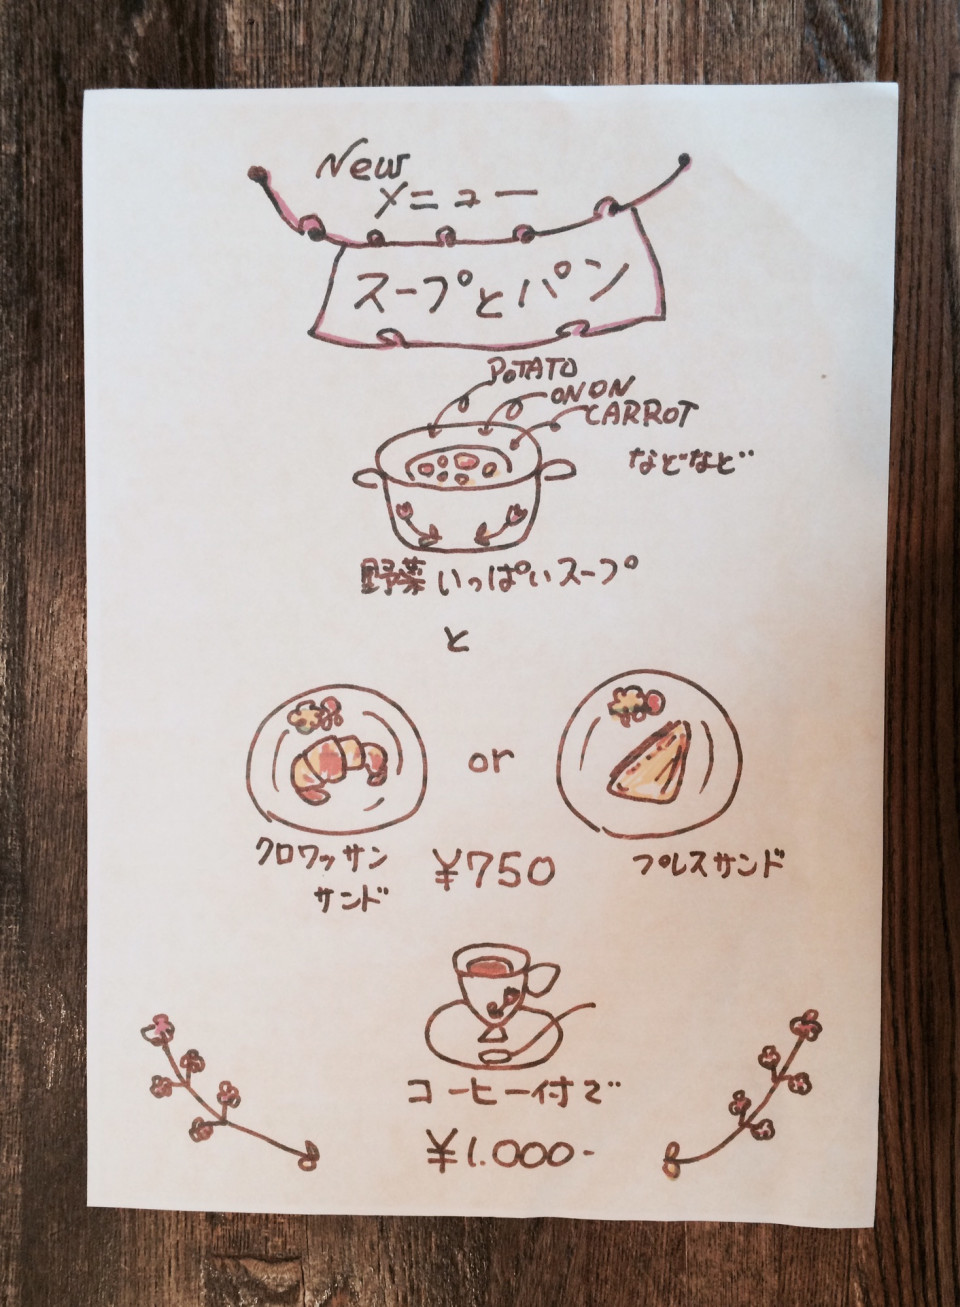 New
メニュー
スープとパン
POTATO
ONON
CARROT
などなど
野菜いっぱいスープ
と
or
クロワッサン
サンド
¥750
プレスサンド
コーヒー付で
¥1.000-